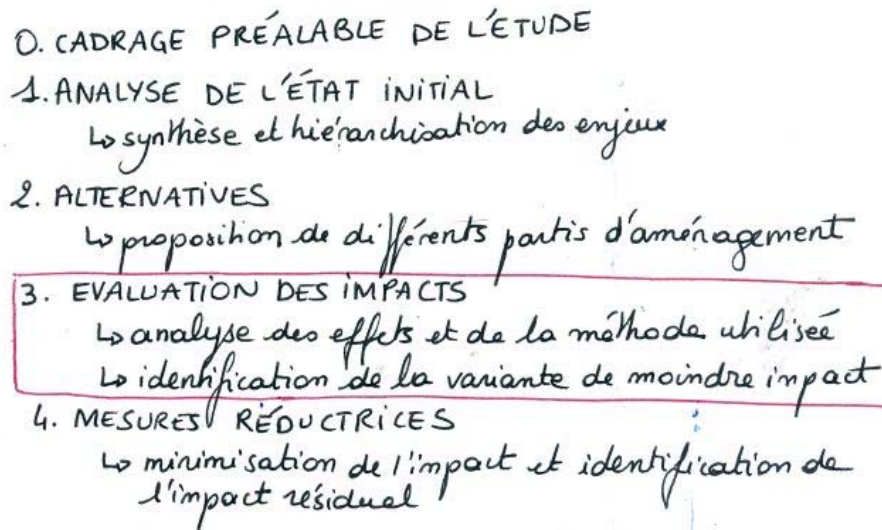 0. CADRAGE PRÉALABLE DE L'ÉTUDE
1. ANALYSE DE L'ÉTAT INITIAL
↳ synthèse et hiérarchisation des enjeux
2. ALTERNATIVES
↳ proposition de différents partis d'aménagement
3. EVALUATION DES IMPACTS
↳ analyse des effets et de la méthode utiliseé
↳ identification de la variante de moindre impact
4. MESURES RÉDUCTRICES
↳ minimisation de l'impact et identification de
l'impact résiduel